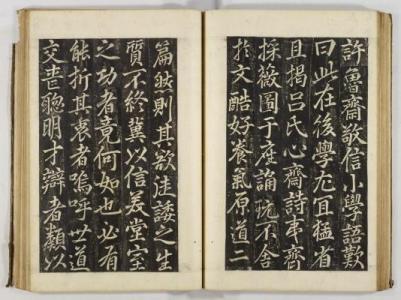 許魯齋敬信小學語歎
曰此在後學尤宜猛省
且揭呂氏心齋詩夷齊
採薇圖于座誦玩不舍
於文酷好養氣原道二
篇然則其之生
質不終冀以信美堂室
之功者竟何如也必有
能折其衷者嗚呼世道
交喪聰明才辯者類以